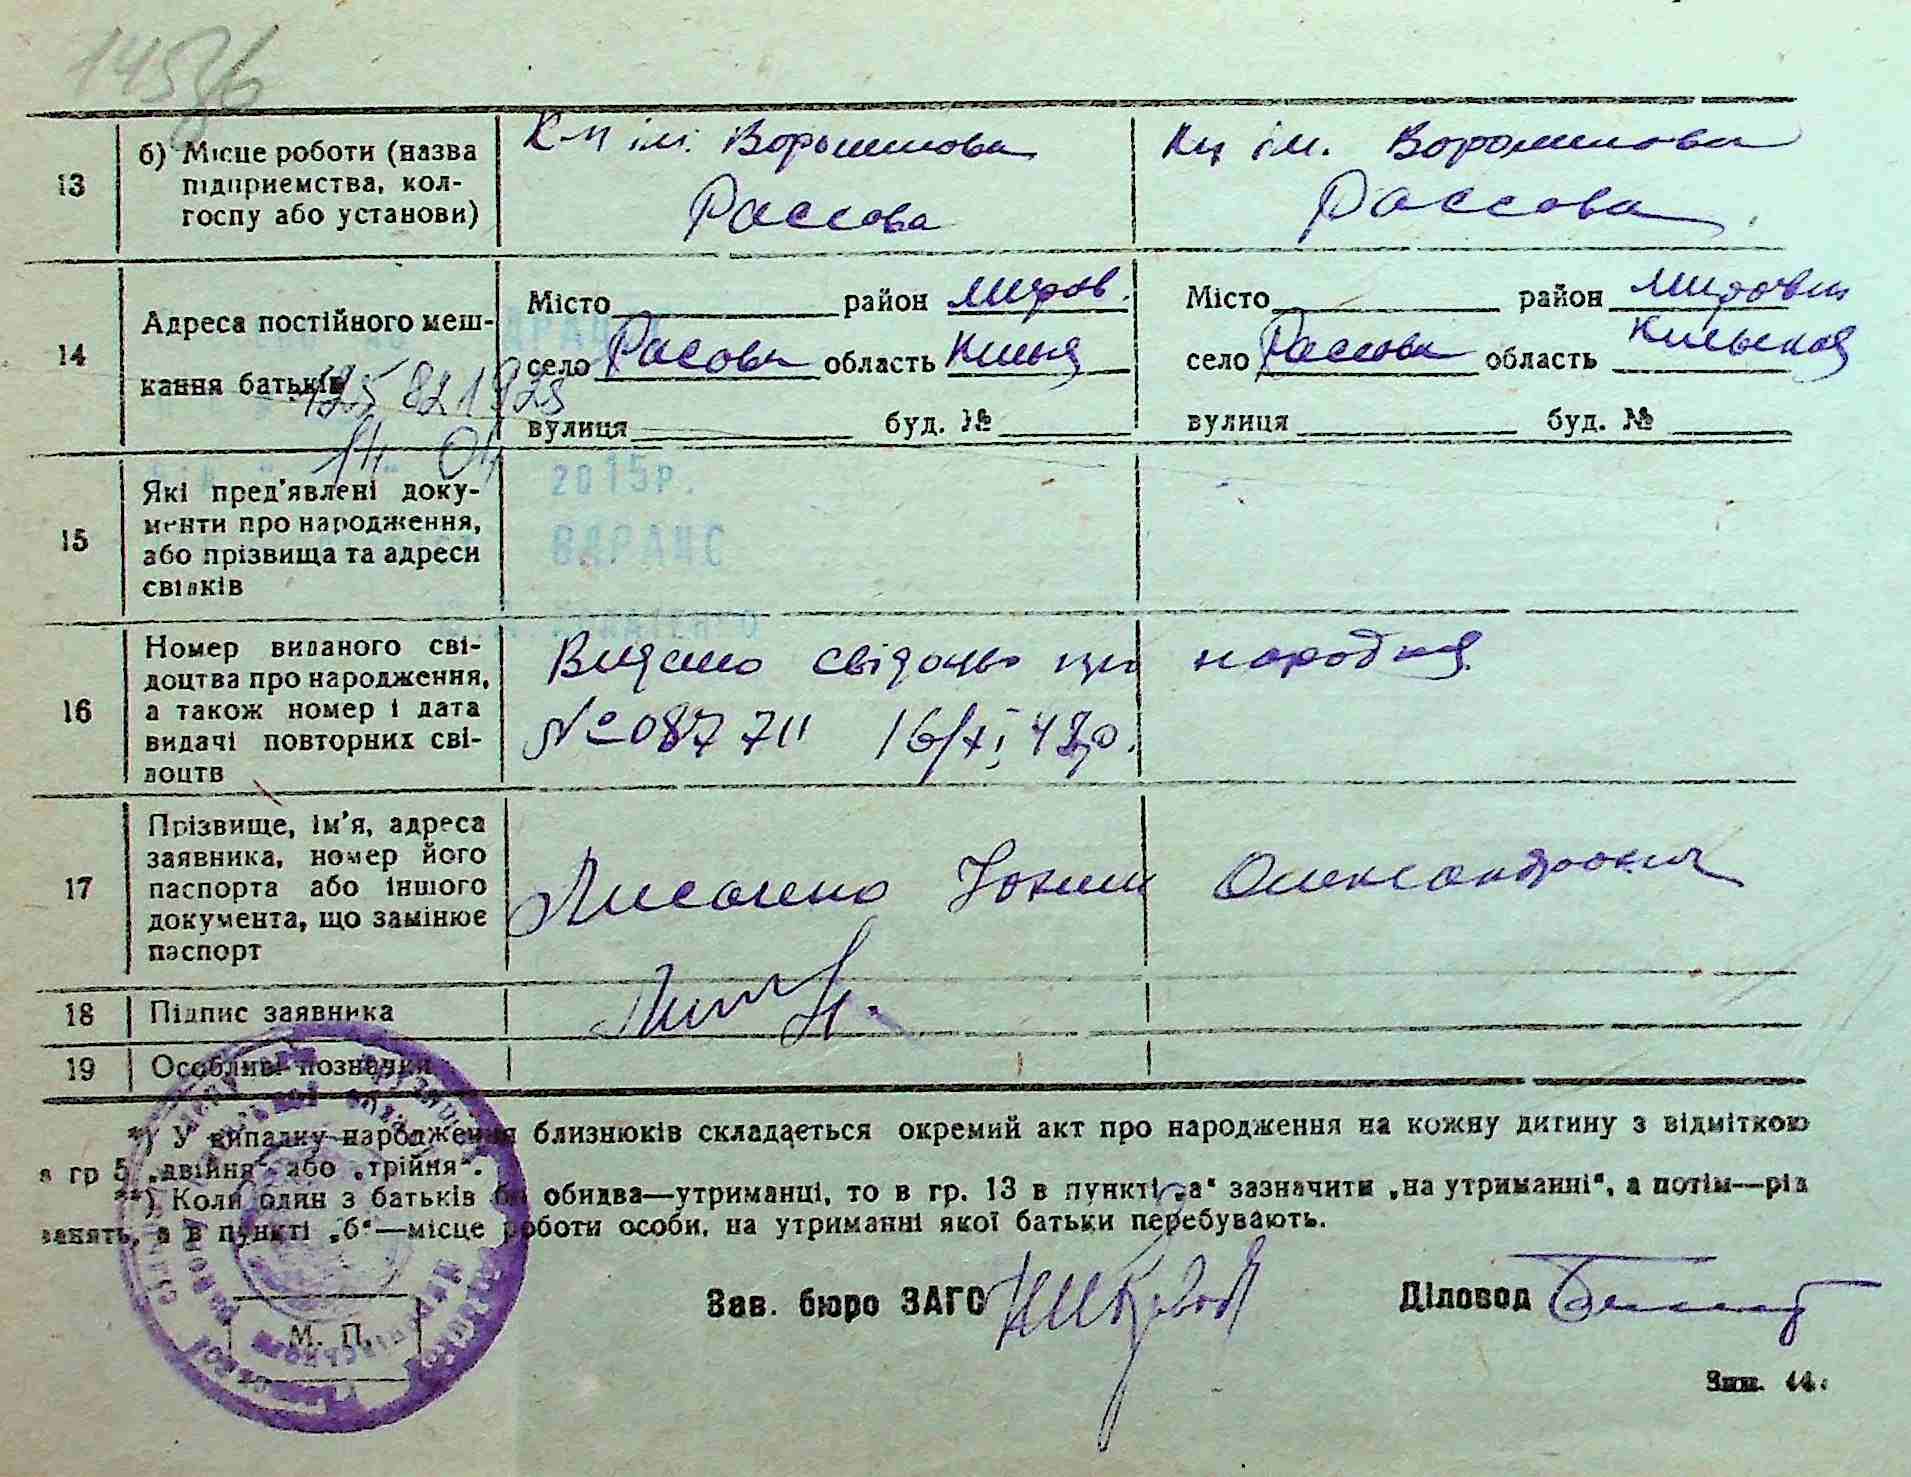 13
б) Місце роботи (назва
підприємства, кол-
госпу або установи)
К-п ім. Ворошилова
Россава
Кп ім. Ворошилова
Россава
14
Адреса постійного меш-
кання батьків
Місто район Миров.
село Росава область Київськ
вулиця буд. №
Місто район Мировськ
село Россава область Київської
вулиця буд. №
2015р.
15
Які пред'явлені доку-
менти про народження,
або прізвища та адреси
свідків
16
Номер виданого сві-
доцтва про народження,
а також номер і дата
видачі повторних сві-
доцтв
Видано свідоцтво про народж
№ 087711 16/XI
17
Прізвище, ім'я, адреса
заявника, номер його
паспорта або іншого
документа, що замінює
паспорт
Олександрович
18
Підпис заявника
19
Особливі позначки
*) У випадку народження близнюків складається окремий акт про народження на кожну дитину з відміткою
в гр 5 „двійня“ або „трійня“.
**) Коли один з батьків би обидва—утриманці, то в гр. 13 в пункті „а“ зазначити „на утриманні“, а потім—рід
занять, а в пункті „б“—місце роботи особи, на утриманні якої батьки перебувають.
Зав. бюро ЗАГС
Діловод
М. П.
Зам. 44